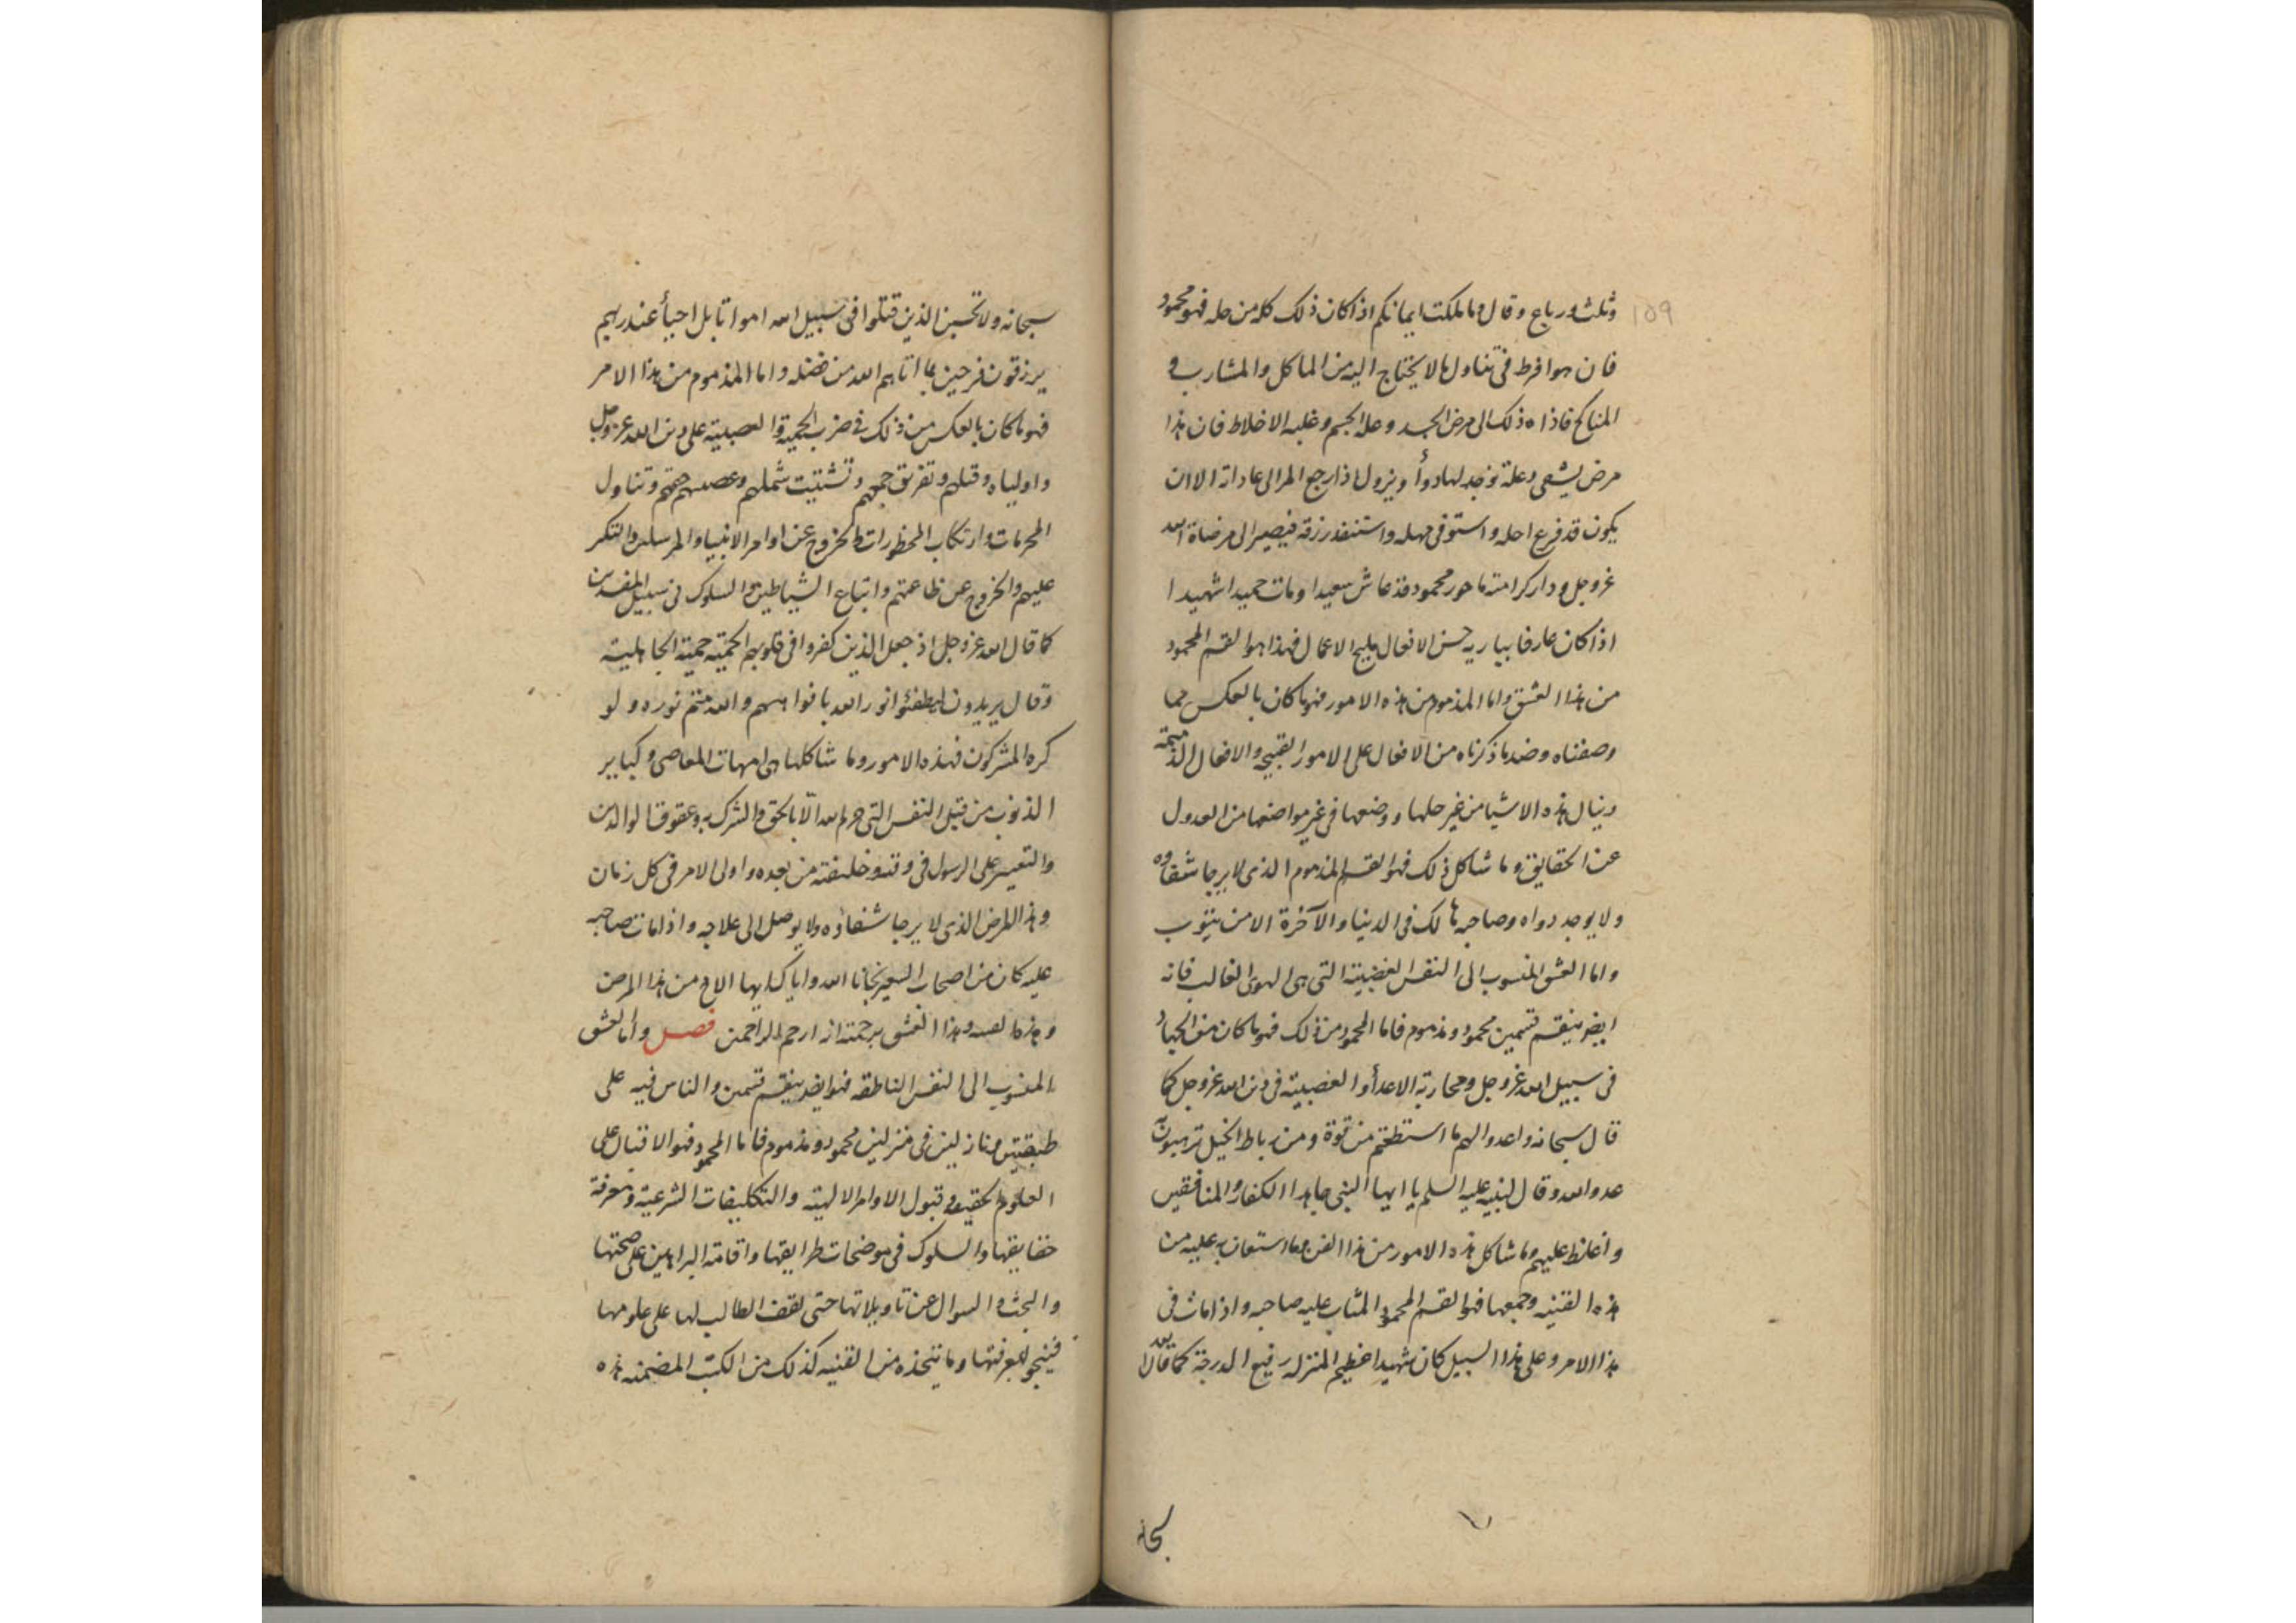 وثلث ورباع وقال وما ملكت ايمانكم اذا كان ذلك كله من حله فهو محمود
١٥٩
فان هو افرط فى تناول ما لا يحتاج اليه من الماكل والمشارب و
المناكح فاذاه ذلك الى مرض الجسد وعلة الجسم وغلبه الاخلاط فان هذا
مرض يشفى وعلة توجد لها دوأ ويزول اذا رجع المرا الى عاداته الا ان
يكون قد فرغ اجله واستوفى مهله واستنفد رزقه فيصير الى مرضاة الله
عز وجل ودار كرامته ماجور محمود قد عاش سعيدا ومات حميدا شهيدا
اذا كان عارفا بباريه حسن الافعال مليح الاعمال فهذا هو القسم المحمود
من هذا العشق واما المذموم من هذه الامور فهو ما كان بالعكس مما
وصفناه وضد ما ذكرناه من الافعال على الامور القبيحه والافعال الذميمة
وينال هذه الاشيا من غير حلها ووضعها فى غير مواضعها من العدول
عن الحقايق وما شاكل ذلك فهو القسم المذموم الذى لا يرجا شفاوه
ولا يوجد دواه وصاحبه هالك فى الدنيا والآخرة الا من يتوب
واما العشق المنسوب الى النفس الغضبية التى هى الهوى الغالب فانه
ايضا ينقسم قسمين محمود ومذموم فاما المحمود من ذلك فهو ما كان منه الجهاد
فى سبيل الله عز وجل ومحاربة الاعدأ والعصبية فى دين الله عز وجل كما
قال سبحانه واعدوا لهم ما استطعتم من قوة ومن رباط الخيل ترهبون به
عدو الله وقال لنبيه عليه السلم يا ايها النبى جاهد الكفار والمنافقين
واغلظ عليهم وما شاكل هذه الامور من هذا الفن وما استعان به عليه من
هذه القنيه وجمعها فهو القسم المحمود المثاب عليه صاحبه واذا مات فى
هذا الامر وعلى هذا السبيل كان شهيدا عظيم المنزله رفيع الدرجة كما قال الله
سبحانه
سبحانه ولا تحسبن الذين قتلوا فى سبيل الله امواتا بل احيأ عند ربهم
يرزقون فرحين بما اتاهم الله من فضله واما المذموم من هذا الامر
فهو ما كان بالعكس من ذلك فى ضرب الحمية والعصبية على دين الله عز وجل
واولياه وقتلهم وتفريق جمعهم وتشتيت شملهم وغصبهم حقهم وتناول
المحرمات وارتكاب المحظورات والخروج عن اوامر الانبيا والمرسلين والتكبر
عليهم والخروج عن طاعتهم واتباع الشياطين والسلوك فى سبيل المفسدين
كما قال الله عز وجل اذ جعل الذين كفروا فى قلوبهم الحمية حمية الجاهلية
وقال يريدون ليطفئوا نور الله بافواههم والله متم نوره ولو
كره المشركون فهذه الامور وما شاكلها هى امهات المعاصى وكباير
الذنوب من قتل النفس التى حرم الله الا بالحق والشرك به وعقوق الوالدين
والتعيير على الرسول فى وقته وخليفته من بعده واولى الامر فى كل زمان
وهذا المرض الذى لا يرجا شفاؤه ولا يوصل الى علاجه واذا مات صاحبه
عليه كان من اصحاب السعير نجانا الله واياك ايها الاخ من هذا المرض
وهذا العشق برحمته انه ارحم الراحمين فصل وأما العشق
المنسوب الى النفس الناطقه فهو ايضا ينقسم قسمين والناس فيه على
طبقتين ومنازلين فى منزلين محمود ومذموم فاما المحمود فهو الاقبال على
العلوم الحقيقيه وقبول الاوامر الالهية والتكليفات الشرعية ومعرفة
حقايقها والسلوك فى موضحات طرايقها واقامة البراهين على صحتها
والبحث والسوال عن تاويلاتها حتى يقف الطالب لها على علومها
فينجو بمعرفتها وما يتخذه من القنيه كذلك من الكتب المضمنه هذه